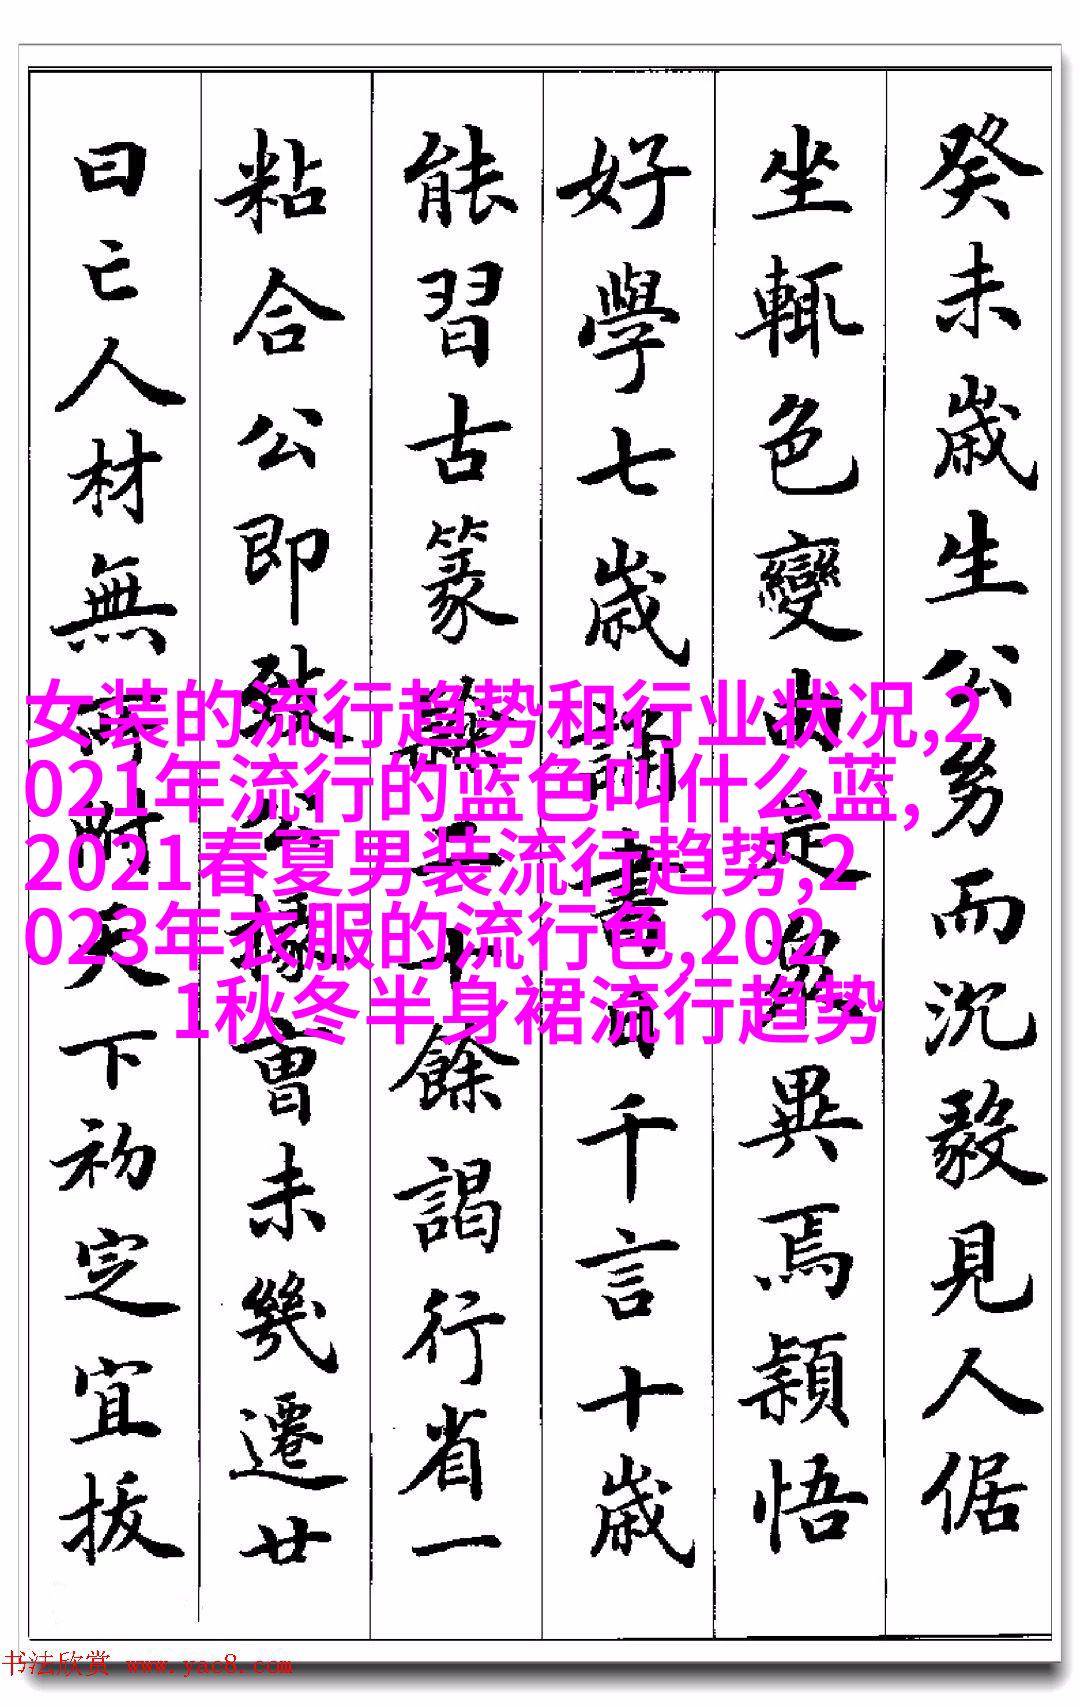 癸未歲生公努而沉毅見人倨
坐輒色變由是最異焉穎悟
好學七歲誦書日千言十歲
能習古篆籀二十餘謁行省一
粘合公即辟公掾曹未幾遷廿
曰亡人材無可附天下初定宜拔
女装的流行趋势和行业状况,2
021年流行的蓝色叫什么蓝,
2021春夏男装流行趋势,2
023年衣服的流行色,202
1秋冬半身裙流行趋势
书法欣赏 www.yac8.com